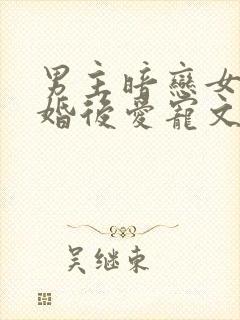 男主暗戀女
婚後愛寵文
吴继東